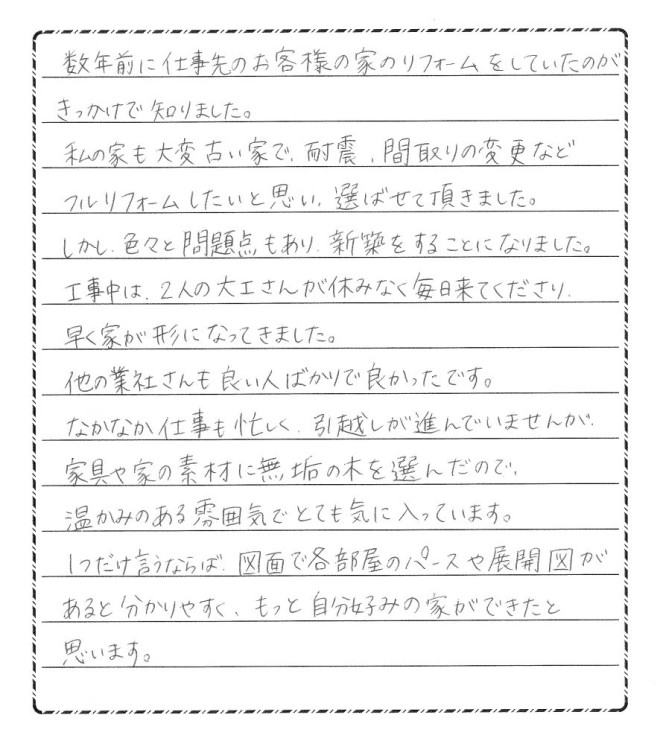 数年前に仕事先のお客様の家のリフォームをしていたのが
きっかけで知りました。
私の家も大変古い家で、耐震、間取りの変更など
フルリフォームしたいと思い、選ばせて頂きました。
しかし、色々と問題点もあり、新築をすることになりました。
工事中は、2人の大工さんが休みなく毎日来てくださり、
早く家が形になってきました。
他の業社さんも良い人ばかりで良かったです。
なかなか仕事も忙しく、引越しが進んでいませんが、
家具や家の素材に無垢の木を選んだので、
温かみのある雰囲気でとても気に入っています。
1つだけ言うならば、図面で各部屋のパースや展開図が
あると分かりやすく、もっと自分好みの家ができたと
思います。